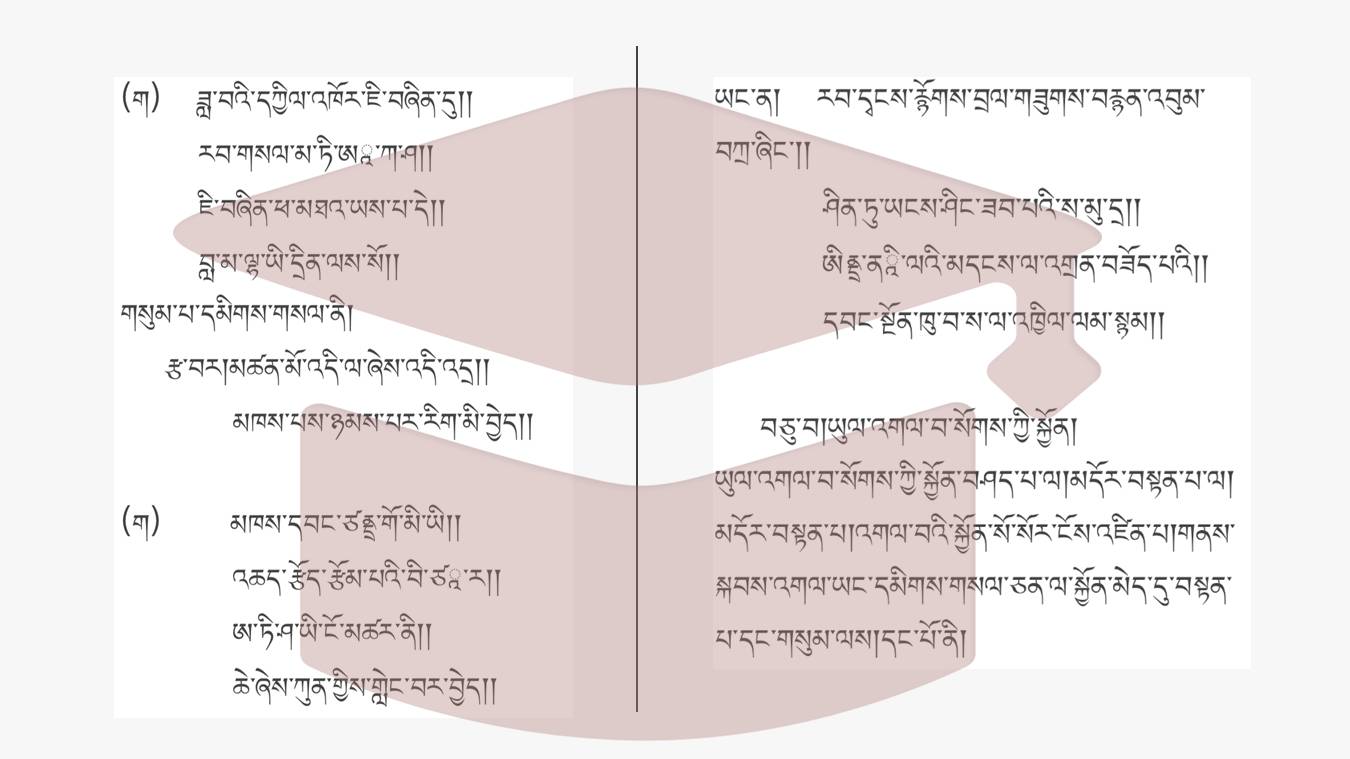 (ག) ཟླ་བའི་དཀྱིལ་འཁོར་ཇི་བཞིན་དུ།།
རབ་གསལ་མ་ཏི་ཨཱ་ཀ་ཤ།།
ཇི་བཞིན་ཕ་མཐའ་ཡས་པ་དེ།།
བླ་མ་ལྷ་ཡི་དྲིན་ལས་སོ།།
གསུམ་པ་དམིགས་གསལ་ནི།
རྩ་བར།མཚན་མོ་འདི་ལ་ཞེས་འདི་འདྲ།།
མཁས་པས་ཉམས་པར་རིག་མི་བྱེད།།
(ག) མཁས་དབང་ཙནྡྲ་གོ་མི་ཡི།།
འཆད་རྩོད་རྩོམ་པའི་བི་ཙཱ་ར།།
ཨ་ཏི་ཤ་ཡི་ངོ་མཚར་ནི།།
ཆེ་ཞེས་ཀུན་གྱིས་གླེང་བར་བྱེད།།
ཡང་ན། རབ་དྭངས་རྙོགས་བྲལ་གཟུགས་བརྙན་འབུམ་
བཀྲ་ཞིང་།།
ཤིན་ཏུ་ཡངས་ཤིང་ཟབ་པའི་ས་མུ་དྲ།།
ཨིནྡྲ་ནཱི་ལའི་མདངས་ལ་འགྲན་བཟོད་པའི།།
དབང་སྔོན་ཁུ་བ་ས་ལ་འཁྱིལ་ལམ་སྙམ།།
བཅུ་བ།ཡུལ་འགལ་བ་སོགས་ཀྱི་སྐྱོན།
ཡུལ་འགལ་བ་སོགས་ཀྱི་སྐྱོན་བཤད་པ་ལ།མདོར་བསྟན་པ་ལ།
མདོར་བསྟན་པ།འགལ་བའི་སྐྱོན་སོ་སོར་ངོས་འཛིན་པ།གནས་
སྐབས་འགལ་ཡང་དམིགས་གསལ་ཅན་ལ་སྐྱོན་མེད་དུ་བསྟན་
པ་དང་གསུམ་ལས།དང་པོ་ནི།